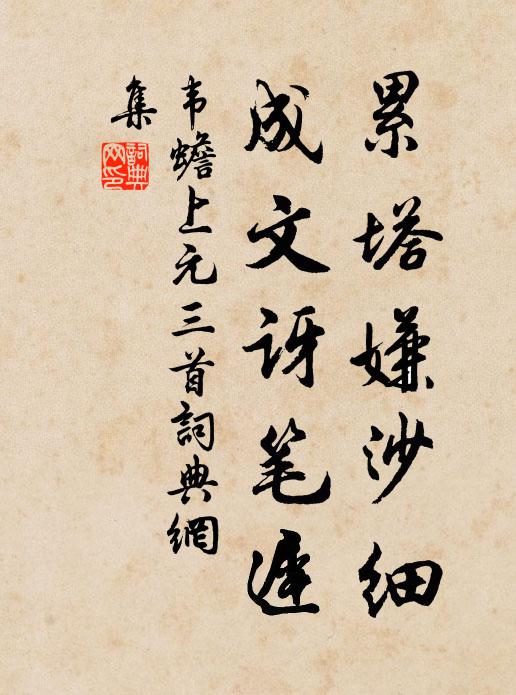 累塔嫌沙细
成文讶笔迟
韦蟾上元三首詞典網
集
詞典
网印